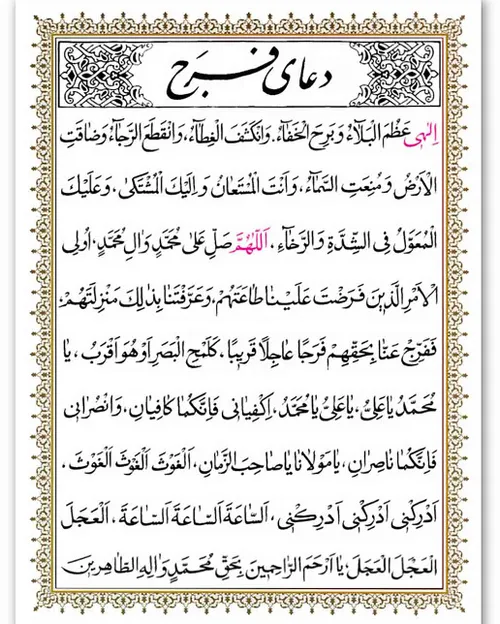 دعای فرج
اِلٰهی عَظُمَ الْبَلاٰۤءُ وَ بَرِحَ الْخَفٰاۤءُ. وَانْكَشَفَ الْغِطٰاۤءُ، وَانْقَطَعَ الرَّجٰاۤءُ وَضٰاقَتِ
الْاَرْضُ وَ مُنِعَتِ السَّمٰاۤءُ، وَاَنْتَ الْمُسْتَعٰانُ وَ اِلَيْكَ الْمُشْتَكىٰ، وَ عَلَيْكَ
الْمُعَوَّلُ فِی الشِّدَّةِ وَ الرَّخٰاۤءِ. اَللّٰهُمَّ صَلِّ عَلىٰ مُحَمَّدٍ وَ اٰلِ مُحَمَّدٍ، اُولِی
الْاَمْرِ الَّذينَ فَرَضْتَ عَلَيْنٰا طٰاعَتَهُمْ، وَ عَرَّفْتَنٰا بِذٰلِكَ مَنْزِلَتَهُمْ،
فَفَرِّجْ عَنّٰا بِحَقِّهِمْ فَرَجًا عٰاجِلًا قَريبًا، كَلَمْحِ الْبَصَرِ اَوْ هُوَ اَقْرَبُ ، يٰا
مُحَمَّدُ يٰا عَلِیُّ، يٰا عَلِیُّ يٰا مُحَمَّدُ، اِكْفِيٰانی فَاِنَّكُمٰا كٰافِيٰانِ، وَ انْصُرٰانی
فَاِنَّكُمٰا نٰاصِرٰانِ، يٰا مَوْلٰانٰا يٰا صٰاحِبَ الزَّمٰانِ، اَلْغَوْثَ اَلْغَوْثَ اَلْغَوْثَ ،
اَدْرِكْنی اَدْرِكْنی اَدْرِكْنی ، اَلسّٰاعَةَ اَلسّٰاعَةَ اَلسّٰاعَةَ ، اَلْعَجَلَ
الْعَجَلَ الْعَجَلَ، يٰا اَرْحَمَ الرّٰاحِمينَ بِحَقِّ مُحَمَّدٍ وَ اٰلِهِ الطّٰاهِرينَ